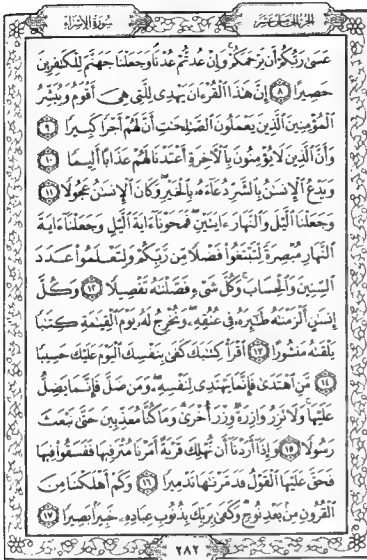 الجزء الخامس عشر
سورة الإسراء
عَسَىٰ رَبُّكُمْ أَن يَرْحَمَكُمْ وَإِنْ عُدتُّمْ عُدْنَا وَجَعَلْنَا جَهَنَّمَ لِلْكَٰفِرِينَ
حَصِيرًا ٨ إِنَّ هَٰذَا ٱلْقُرْءَانَ يَهْدِى لِلَّتِى هِىَ أَقْوَمُ وَيُبَشِّرُ
ٱلْمُؤْمِنِينَ ٱلَّذِينَ يَعْمَلُونَ ٱلصَّٰلِحَٰتِ أَنَّ لَهُمْ أَجْرًا كَبِيرًا ٩
وَأَنَّ ٱلَّذِينَ لَا يُؤْمِنُونَ بِٱلْءَاخِرَةِ أَعْتَدْنَا لَهُمْ عَذَابًا أَلِيمًا ١٠
وَيَدْعُ ٱلْإِنسَٰنُ بِٱلشَّرِّ دُعَآءَهُۥ بِٱلْخَيْرِ وَكَانَ ٱلْإِنسَٰنُ عَجُولًا ١١
وَجَعَلْنَا ٱلَّيْلَ وَٱلنَّهَارَ ءَايَتَيْنِ فَمَحَوْنَآ ءَايَةَ ٱلَّيْلِ وَجَعَلْنَآ ءَايَةَ
ٱلنَّهَارِ مُبْصِرَةً لِّتَبْتَغُوا۟ فَضْلًا مِّن رَّبِّكُمْ وَلِتَعْلَمُوا۟ عَدَدَ
ٱلسِّنِينَ وَٱلْحِسَابَ وَكُلَّ شَىْءٍ فَصَّلْنَٰهُ تَفْصِيلًا ١٢ وَكُلَّ
إِنسَٰنٍ أَلْزَمْنَٰهُ طَٰٓئِرَهُۥ فِى عُنُقِهِۦ وَنُخْرِجُ لَهُۥ يَوْمَ ٱلْقِيَٰمَةِ كِتَٰبًا
يَلْقَىٰهُ مَنشُورًا ١٣ ٱقْرَأْ كِتَٰبَكَ كَفَىٰ بِنَفْسِكَ ٱلْيَوْمَ عَلَيْكَ حَسِيبًا
١٤ مَّنِ ٱهْتَدَىٰ فَإِنَّمَا يَهْتَدِى لِنَفْسِهِۦ وَمَن ضَلَّ فَإِنَّمَا يَضِلُّ
عَلَيْهَا وَلَا تَزِرُ وَازِرَةٌ وِزْرَ أُخْرَىٰ وَمَا كُنَّا مُعَذِّبِينَ حَتَّىٰ نَبْعَثَ
رَسُولًا ١٥ وَإِذَآ أَرَدْنَآ أَن نُّهْلِكَ قَرْيَةً أَمَرْنَا مُتْرَفِيهَا فَفَسَقُوا۟ فِيهَا
فَحَقَّ عَلَيْهَا ٱلْقَوْلُ فَدَمَّرْنَٰهَا تَدْمِيرًا ١٦ وَكَمْ أَهْلَكْنَا مِنَ
ٱلْقُرُونِ مِنۢ بَعْدِ نُوحٍ وَكَفَىٰ بِرَبِّكَ بِذُنُوبِ عِبَادِهِۦ خَبِيرًۢا بَصِيرًا ١٧
٢٨٣